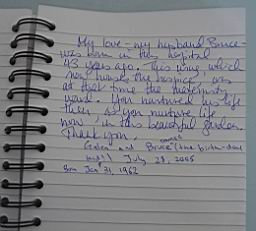 My love - my husband Bruce -
was born in this hospital
43 years ago. This wing which
now houses the hospice, was
at that time the maternity
ward. You nurtured his life
then, as you nurture life
now in this beautiful garden.
Thank you.
and Bruce (the birth-day
July 28, 2005
Born Jan 31, 1962